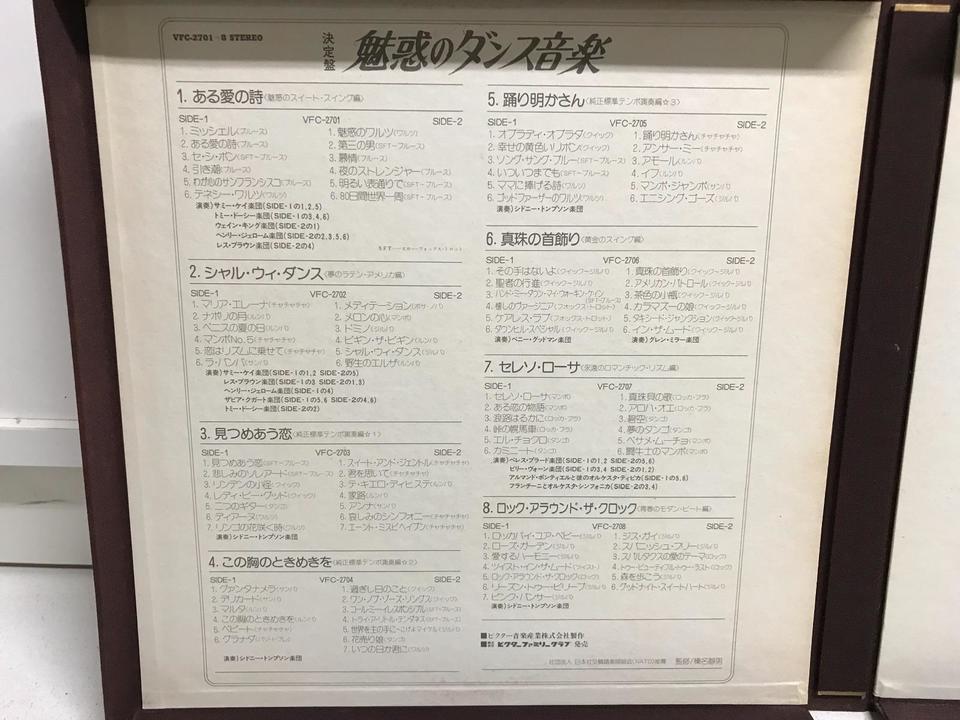 VFC-2701~8 STEREO
決定盤
魅惑のダンス音楽
1. ある愛の詩〈魅惑のスイート・スイング編〉
SIDE-1 VFC-2701 SIDE-2
1. ミッシェル(ブルース)
2. ある愛の詩(ブルース)
3. セ・シ・ボン(SFT~ブルース)
4. 引き潮(ブルース)
5. わが心のサンフランシスコ(ブルース)
6. テネシー・ワルツ(ワルツ)
1. 魅惑のワルツ(ワルツ)
2. 第三の男(SFT~ブルース)
3. 慕情(ブルース)
4. 夜のストレンジャー(SFT~ブルース)
5. 明るい表通りで(SFT~ブルース)
6. 80日間世界一周(SFT~ブルース)
演奏)サミー・ケイ楽団(SIDE-1の1,2,5)
トミー・ドーシー楽団(SIDE-1の3,4,6)
ウェイン・キング楽団(SIDE-2の1)
ヘンリー・ジェローム楽団(SIDE-2の2,3,5,6)
レス・ブラウン楽団(SIDE-2の4)
2. シャル・ウィ・ダンス〈夢のラテン・アメリカ編〉
SIDE-1 VFC-2702 SIDE-2
1. マリア・エレーナ(チャチャチャ)
2. ナポリの月(ルンバ)
3. ベニスの夏の日(ルンバ)
4. マンボNo.5(チャチャチャ)
5. 恋はリズムに乗せて(チャチャチャ)
6. ラ・バンバ(サンバ)
1. メディテーション(ボサ・ノバ)
2. メロンの心(マンボ)
3. ドミノ(ジルバ)
4. ビギン・ザ・ビギン(ルンバ)
5. シャル・ウィ・ダンス(ジルバ)
6. 野生のエルザ(ルンバ)
演奏)サミー・ケイ楽団(SIDE-1の1,2 SIDE-2の5)
レス・ブラウン楽団(SIDE-1の3 SIDE-2の1,3)
ヘンリー・ジェローム楽団(SIDE-1の4)
ザビア・クガート楽団(SIDE-1の5,6 SIDE-2の4,6)
トミー・ドーシー楽団(SIDE-2の2)
3. 見つめあう恋〈純正標準テンポ演奏編☆1〉
SIDE-1 VFC-2703 SIDE-2
1. 見つめあう恋(SFT~ブルース)
2. 悲しみのソレアード(SFT~ブルース)
3. リンデンの小径(クイック)
4. レディ・ビー・グッド(クイック)
5. 二つのギター(タンゴ)
6. ディアーヌ(ワルツ)
7. リンゴの花咲く時(ワルツ)
1. スイート・アンド・ジェントル(チャチャチャ)
2. 君を想いて(チャチャチャ)
3. テ・キエロ・ディヒステ(ルンバ)
4. 家路(ルンバ)
5. アンナ(サンバ)
6. 哀しみのシンフォニー(チャチャチャ)
7. エーント・ミスビヘイブン(チャチャチャ)
演奏)シドニー・トンプソン楽団
4. この胸のときめきを〈純正標準テンポ演奏編☆2〉
SIDE-1 VFC-2704 SIDE-2
1. グァンタナメラ(サンバ)
2. デリカード(サンバ)
3. マルタ(ルンバ)
4. この胸のときめきを(ルンバ)
5. ベビート(チャチャチャ)
6. グラナダ
1. 過ぎし日のこと(クイック)
2. ワン・ノブ・ゾーズ・ソングス(クイック)
3. コール・ミー・イレスポンシブル(SFT~ブルース)
4. トライ・ア・リトル・テンダネス(SFT~ブルース)
5. 世界を主の手に~こげよマイケル(ジルバ)
6. 花売り娘(タンゴ)
7. いつの日か君に(ワルツ)
演奏)シドニー・トンプソン楽団
5. 踊り明かさん〈純正標準テンポ演奏編☆3〉
SIDE-1 VFC-2705 SIDE-2
1. オブラディ・オブラダ(クイック)
2. 幸せの黄色いリボン(クイック)
3. ソング・サング・ブルー(SFT~ブルース)
4. いついつまでも(SFT~ブルース)
5. ママに捧げる詩(ワルツ)
6. ゴッドファーザーのワルツ(ワルツ)
1. 踊り明かさん(チャチャチャ)
2. アンサー・ミー(チャチャチャ)
3. アモール(ルンバ)
4. イフ(ルンバ)
5. マンボ・ジャンボ(サンバ)
6. エニシング・ゴーズ(ジルバ)
演奏)シドニー・トンプソン楽団
6. 真珠の首飾り〈黄金のスイング編〉
SIDE-1 VFC-2706 SIDE-2
1. その手はないよ(クイック~ジルバ)
2. 聖者の行進(クイック~ジルバ)
3. ハンド・ミー・ダウン・マイ・ウォーキン・ケイン(SFT~ブルース)
4. 懐しのヴァージニア(フォックス・トロット)
5. ケアレス・ラブ(フォックス・トロット)
6. ダウンヒル・スペシャル(クイック~ジルバ)
1. 真珠の首飾り(クイック~ジルバ)
2. アメリカン・パトロール(クイック~ジルバ)
3. 茶色の小瓶(クイック~ジルバ)
4. カラマズーの娘(クイック~ジルバ)
5. タキシード・ジャンクション(クイック~ジルバ)
6. イン・ザ・ムード(クイック~ジルバ)
演奏)ベニー・グッドマン楽団
演奏)グレン・ミラー楽団
7. セレソ・ローサ〈永遠のロマンチック・リズム編〉
SIDE-1 VFC-2707 SIDE-2
1. セレソ・ローサ(マンボ)
2. ある恋の物語(マンボ)
3. 浪路はるかに(ロッカ・フラ)
4. 峠の幌馬車(ロッカ・フラ)
5. エル・チョクロ(タンゴ)
6. カミニート(タンゴ)
1. 真珠貝の歌(ロッカ・フラ)
2. アロハ・オエ(ロッカ・フラ)
3. 碧空(タンゴ)
4. 夢のタンゴ(タンゴ)
5. ベサメ・ムーチョ(マンボ)
6. 闘牛士のマンボ(マンボ)
演奏)ペレス・プラード楽団(SIDE-1の1,2 SIDE-2の5,6)
ビリー・ヴォーン楽団(SIDE-1の3,4 SIDE-2の1,2)
アルマンド・ポンティエルと彼のオルケスタ・ティピカ(SIDE-1の5,6)
フランチーニとオルケスタ・シンフォニカ(SIDE-2の3,4)
8. ロック・アラウンド・ザ・クロック〈青春のモダン・ビート編〉
SIDE-1 VFC-2708 SIDE-2
1. ロッカバイ・ユア・ベビー(ジルバ)
2. ローズ・ガーデン(ジルバ)
3. 愛するハーモニー(ジルバ)
4. ツイスト・イン・ザ・ムード(ツイスト)
5. ロック・アラウンド・ザ・クロック(ロック)
6. トレーズン・トゥー・ビリーブ(ジルバ)
7. ピンク・パンサー(ジルバ)
1. ジス・ガイ(ジルバ)
2. スパニッシュ・フリー(ジルバ)
3. スパルタクスの愛のテーマ(ロック)
4. トゥー・ビューティフル・トゥー・ラスト(ロック)
5. 森を歩こう(ジルバ)
6. グッドナイト・スイートハート(ジルバ)
演奏)シドニー・トンプソン楽団
■ビクター音楽産業株式会社製作
ビクターファミリークラブ発売
社団法人 日本社交舞踏教師協会(NATD)推薦 監修/榛名静男